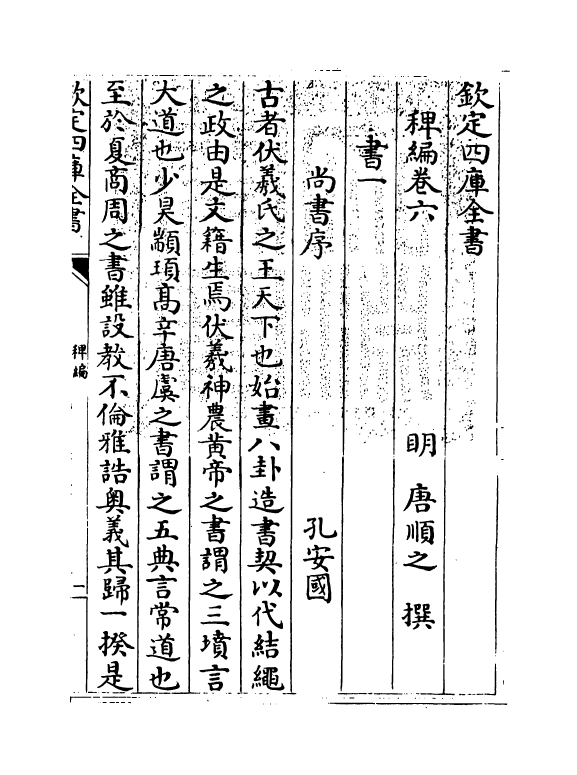 欽定四庫全書
稗編卷六 明 唐順之 撰
書一
尚書序 孔安國
古者伏羲氏之王天下也始畫八卦造書契以代結繩
之政由是文籍生焉伏羲神農黄帝之書謂之三墳言
大道也少昊顓頊髙辛唐虞之書謂之五典言常道也
至於夏商周之書雖設教不倫雅誥奥義其歸一揆是
欽定四庫全書
稗編
二